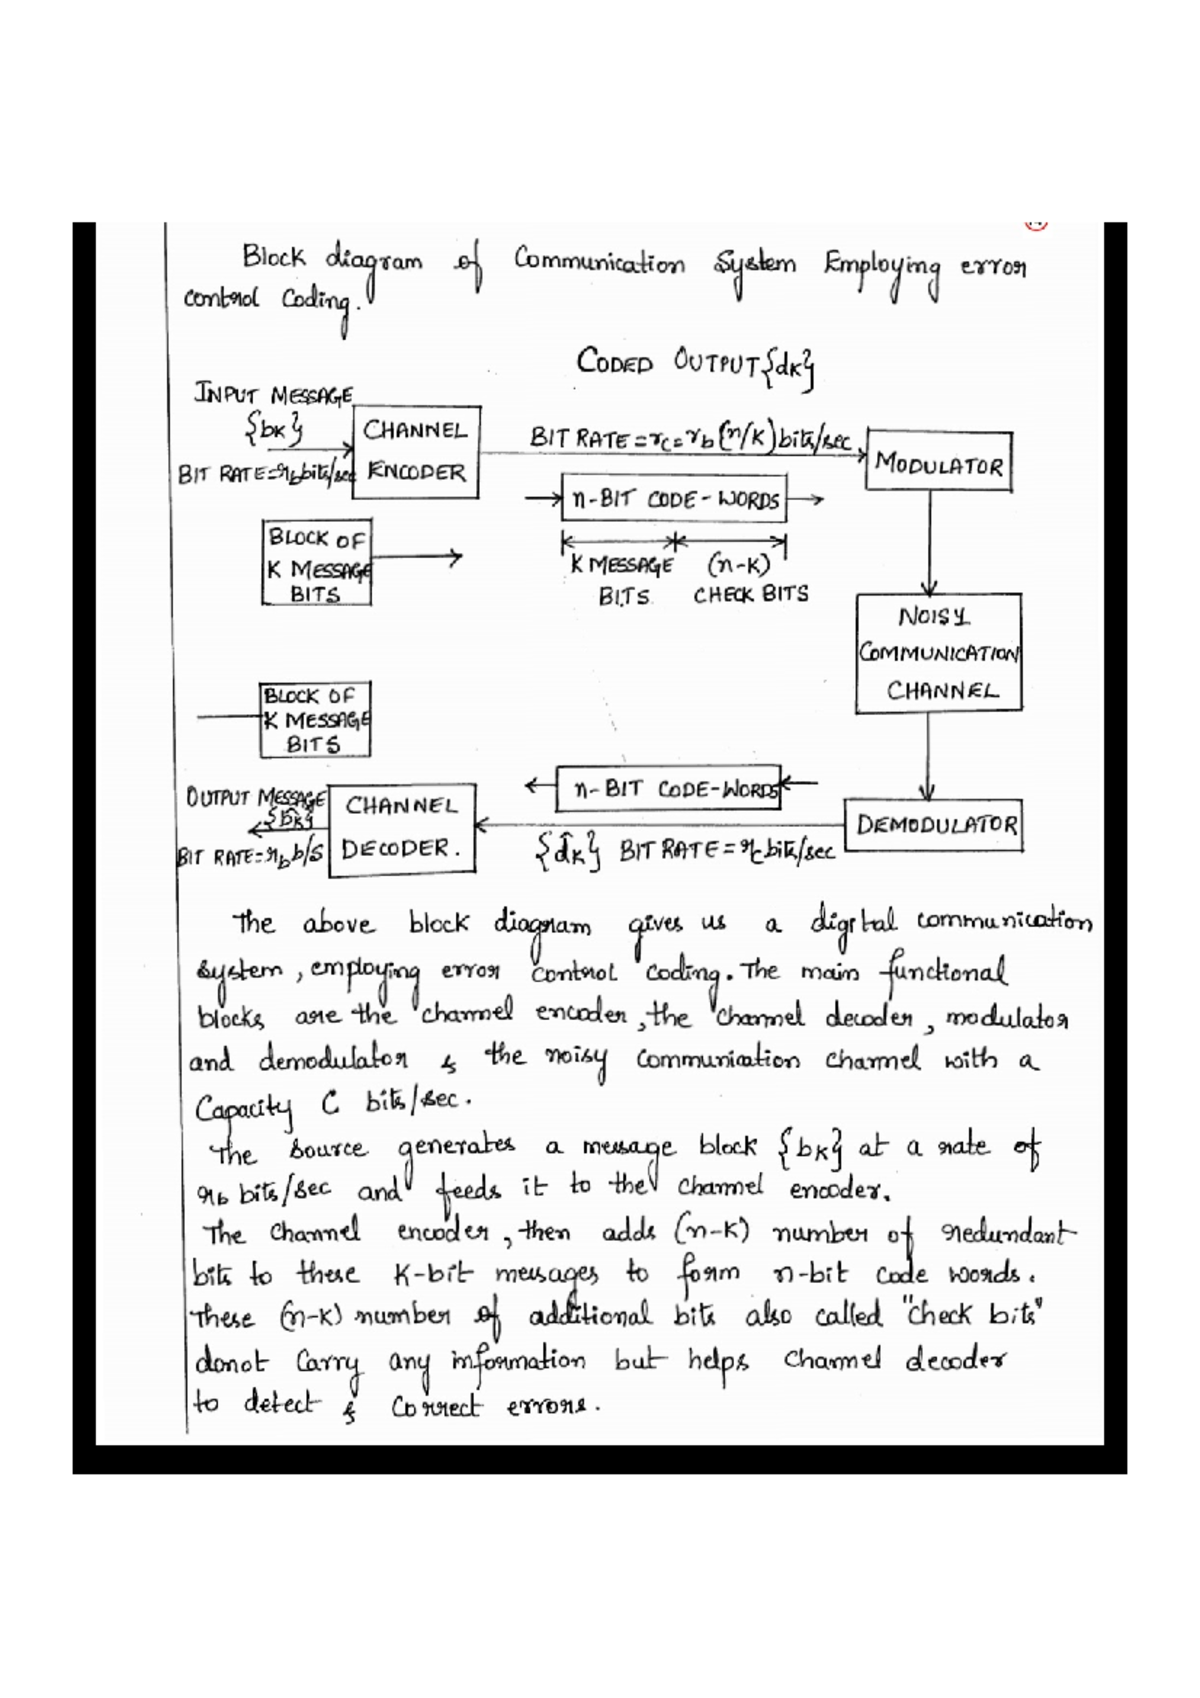 Block diagram of Communication System Employing error
control Coding.
CODED OUTPUT {dK}
INPUT MESSAGE
{bK}
BIT RATE = rb bits/sec
CHANNEL
ENCODER
BIT RATE = rc = rb (n/K) bits/sec
MODULATOR
n-BIT CODE-WORDS
BLOCK OF
K MESSAGE
BITS
K MESSAGE
BITS
(n-K)
CHECK BITS
NOISY
COMMUNICATION
CHANNEL
BLOCK OF
K MESSAGE
BITS
n-BIT CODE-WORDS
OUTPUT MESSAGE
{b̂K}
BIT RATE = rb b/s
CHANNEL
DECODER.
{d̂K} BIT RATE = rc bits/sec
DEMODULATOR
The above block diagram gives us a digital communication
system, employing error control coding. The main functional
blocks are the channel encoder, the channel decoder, modulator
and demodulator & the noisy communication channel with a
Capacity C bits/sec.
The source generates a message block {bK} at a rate of
rb bits/sec and feeds it to the channel encoder.
The channel encoder, then adds (n-K) number of redundant
bits to these K-bit messages to form n-bit code words.
These (n-K) number of additional bits also called "check bits"
donot carry any information but helps channel decoder
to detect & correct errors.